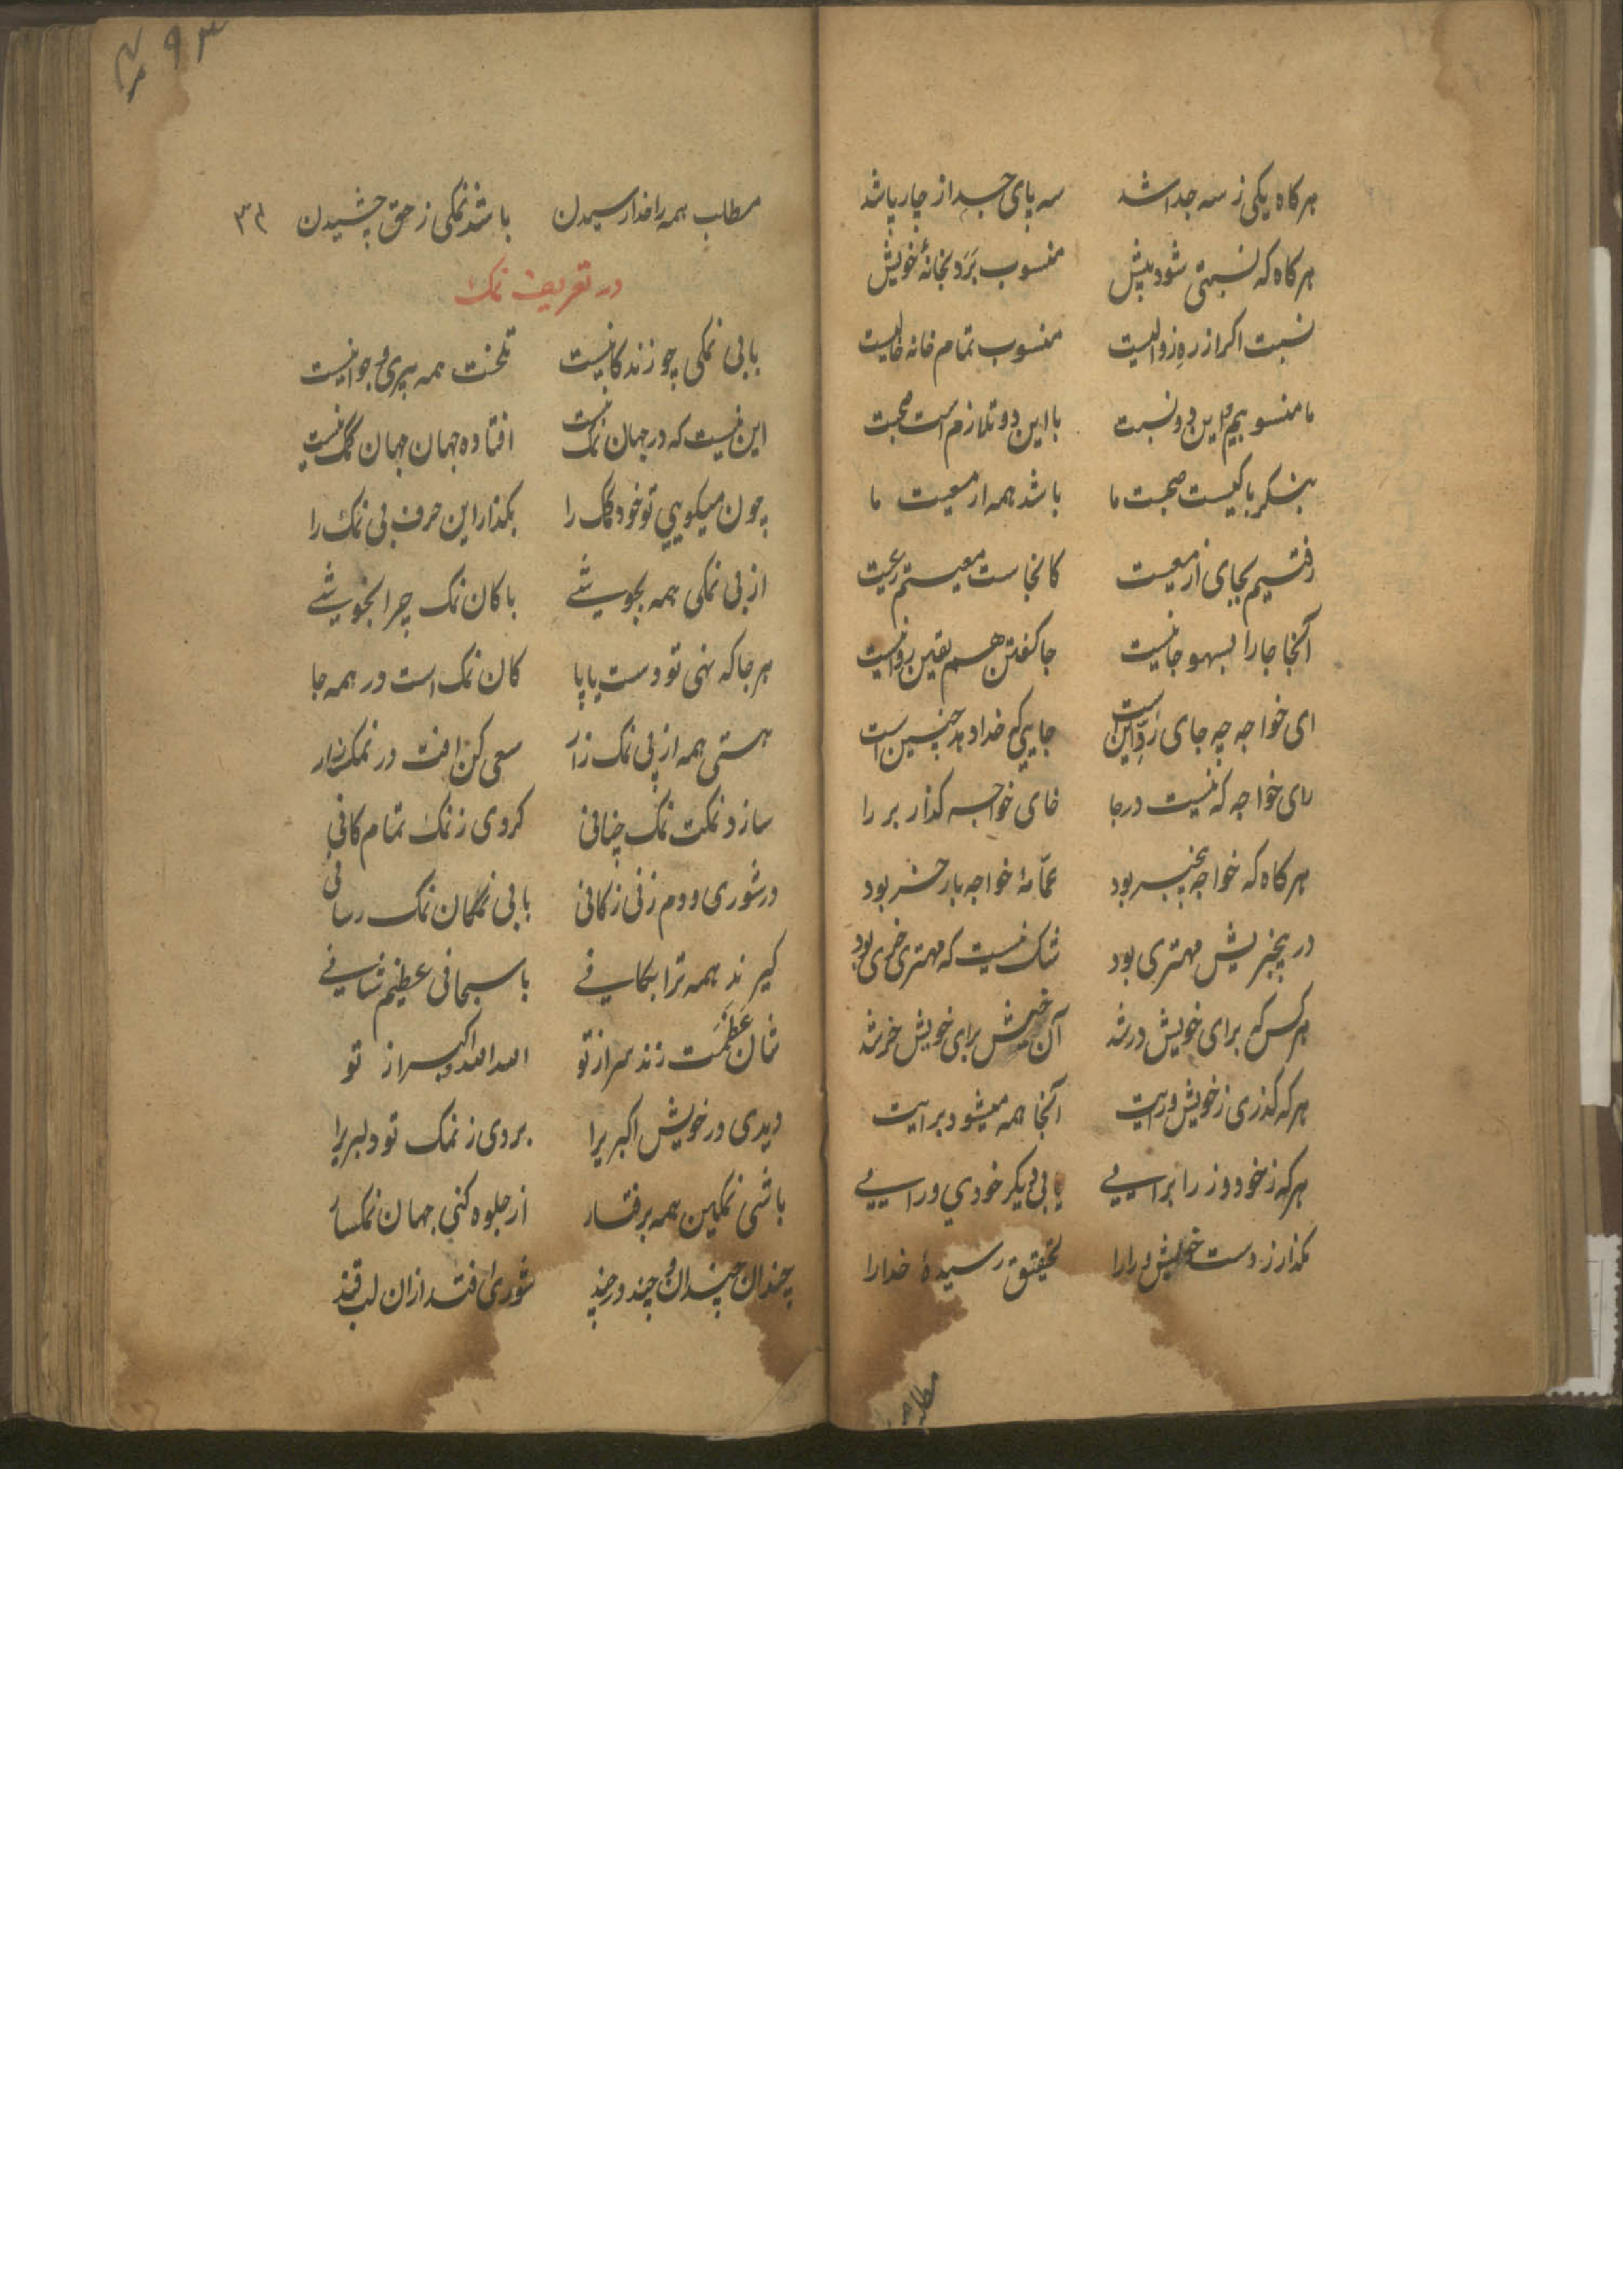 هرکاه یکی ز سه جدا شد سه پای جدا ز چار پا شد
هرکاه که نسبتی شود پیش منسوب بَرَد بخانهٔ خویش
نسبت اکر از رهِ زوالیست منسوب تمام خانه خالیست
ما منسوبیم و این دو نسبت با این دو تلازم است صحبت
بنکر با کیست صحبت ما باشد همه از معیت ما
رفتیم بجای از معیت کانجاست
آنجا جا را بسهو جا نیست جا کفتن هم یقین روا نیست
ای خواجه چه جای است جایی که خدا دهد چنین است
رای خواجه که نیست درجا خای خواجه کذار بر را
هرکاه که خواجه بیخبر بود عمّامهٔ خواجه بار خر بود
در بیخبریش مهتری بود شک نیست که مهتری خری بود
هرکس که برای خویش در شد آن خویش برای خویش خر شد
هرکه کذری ز خویش ورایت آنجا همه میشود برایت
هرکه ز خود و ز را برایی یابی دیکر خودی ورایی
بکذار ز دست خویش و را را تحقیق رسیدهٔ خدا را
مطلب
۳۹۳
مطلب همه را خدا رسیدن باشد نمکی ز حق چشیدن
در تعریف نمک
با بی نمکی چو زندکانیست تلخت همه پیری و جوانیست
این نیست که در جهان نمک نیست افتاده جهان جهان کمک نیست
چون میکویی تو خود کمک را بکذار این حرف بی نمک را
از بی نمکی همه بجوشی با کان نمک چرا نجوشی
هرجا که نهی تو دست یا پا کان نمک است در همه جا
هستی همه از پی نمک زار سعی کن افت در نمکزار
سازد نمکت نمک چنانی کردی ز نمک تمام کانی
در شوری و دم زنی ز کانی با بی نمکان نمک رسانی
کیرند همه ترا بکانی با سبحانی عظیم شانی
شان عَظَمَت زند سر از تو الله الله و اکبر از تو
دیدی در خویش اکبری را بردی ز نمک تو دلبری را
باشی نمکین همه برفتار از جلوه کنی جهان نمکسار
چندان چندان و چند در چند شوری افتد ازان لب قند